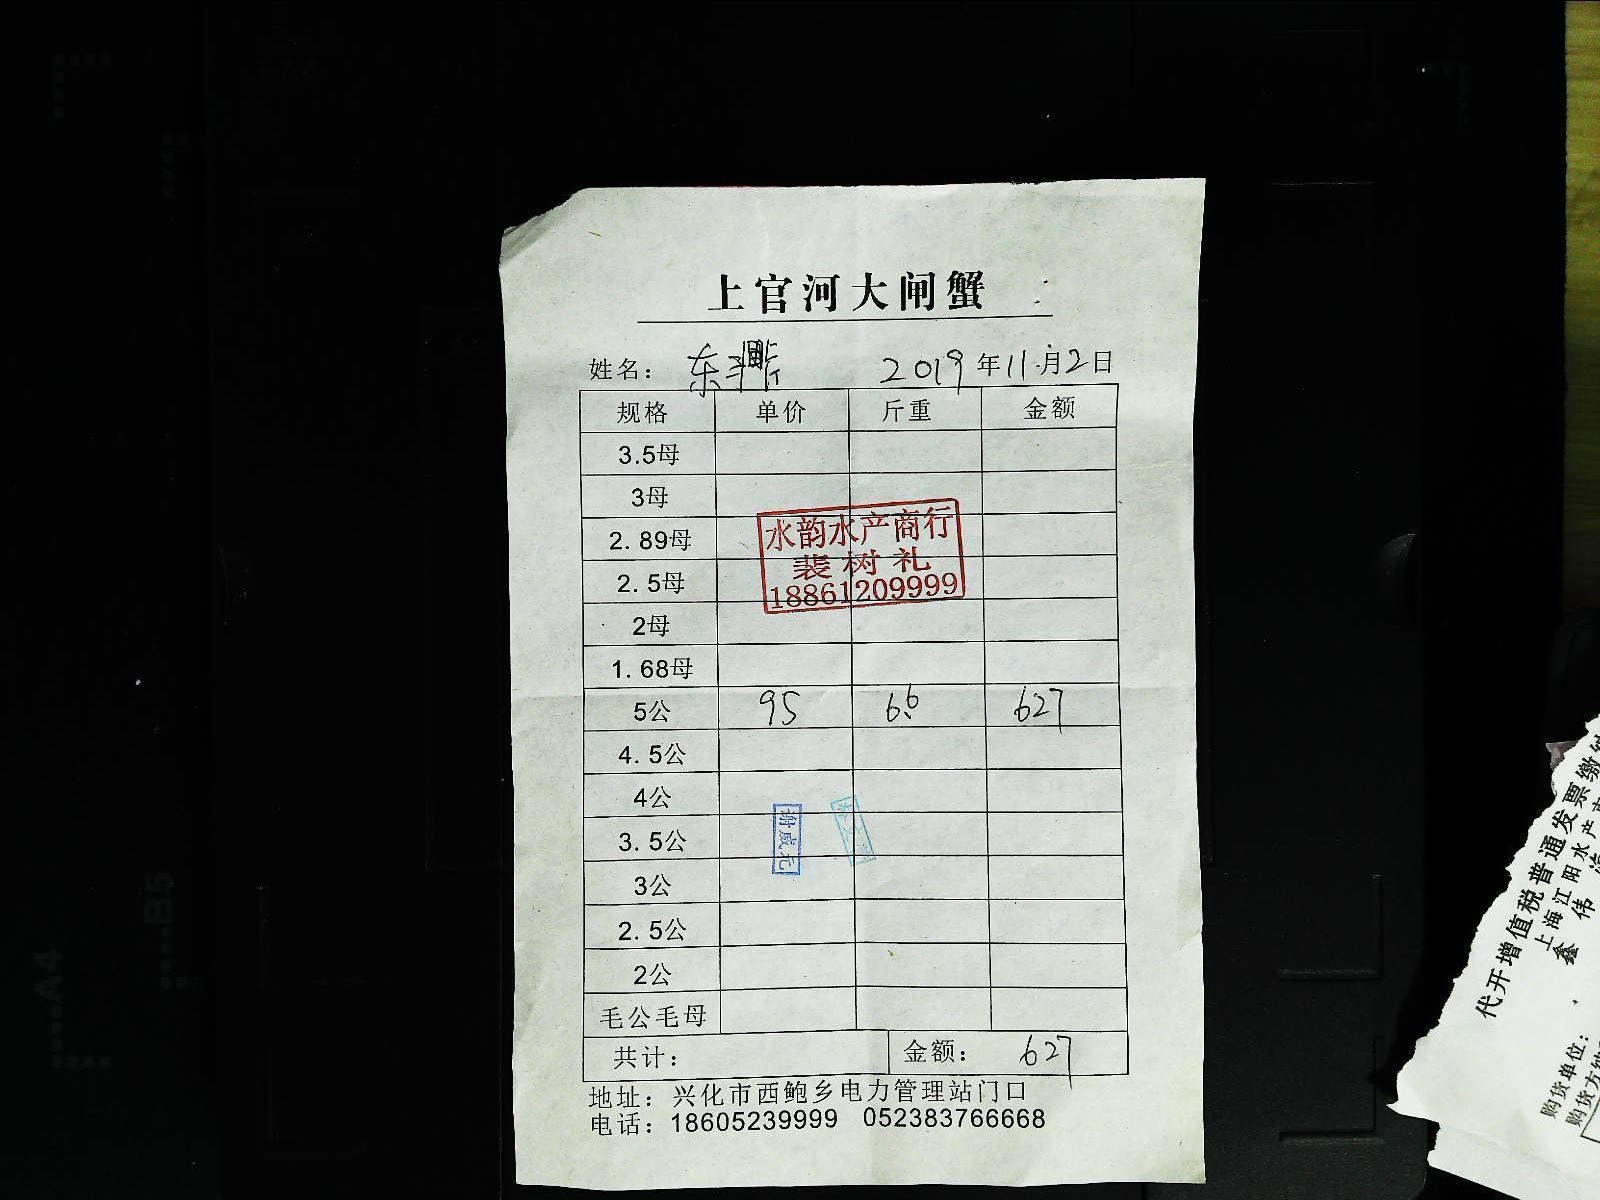 上官河大闸蟹
姓名： 东 2019年11月2日
规格 单价 斤重 金额
3.5母
3母
2.89母
2.5母
2母
1.68母
5公 95 6.6 627
4.5公
4公
3.5公
3公
2.5公
2公
毛公毛母
共计： 金额： 627
地址：兴化市西鲍乡电力管理站门口
电话：18605239999 052383766668
水韵水产商行
裴树礼
18861209999
谢成元
代开增值税普通发票缴纳
上海江阳水产
鑫伟海
购货单位：
购货方纳
A4
B5